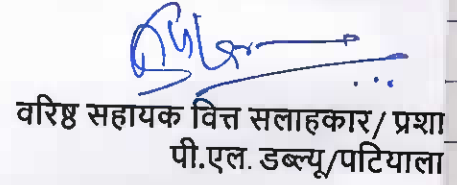 वरिष्ठ सहायक वित्त सलाहकार/ प्रशा
पी.एल. डब्ल्यू/पटियाला